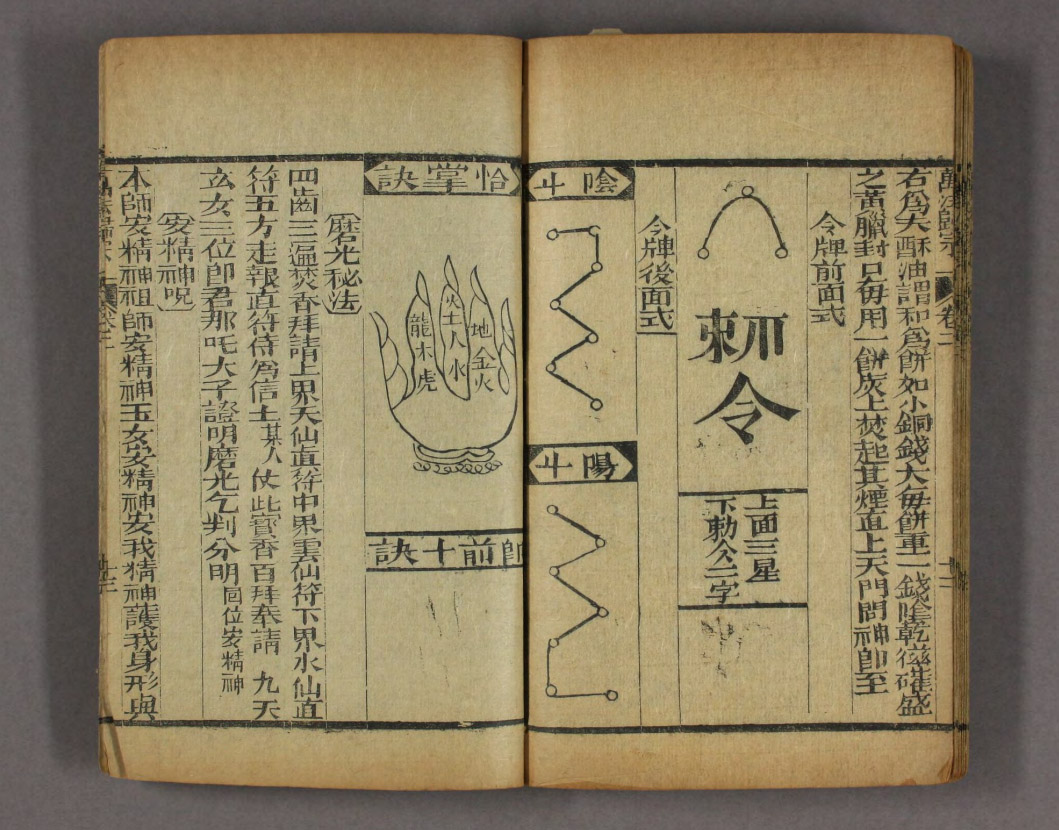 萬法歸宗 卷二 十三
右爲末酥油調和爲餅如小銅錢大每餅重一錢陰乾磁礶盛
之黃臘封口每用一餅炭上焚起其煙直上天門問神即至
令牌前面式
勅令
上面三星
下勅令二字
令牌後面式
陰斗
陽斗
恰掌訣
地金火
火土人水
龍木虎
師前十訣
磨光秘法
四齒三遍焚香拜請上界天仙直符中界雲仙符下界水仙直
符五方走報直符侍爲信士某人仗此寳香百拜奉請九天
玄女三位郎君那吒太子證明磨光乞判分明回位安精神
安精神呪
本師安精神祖師安精神玉女安精神安我精神護我身形與
卷二
十三